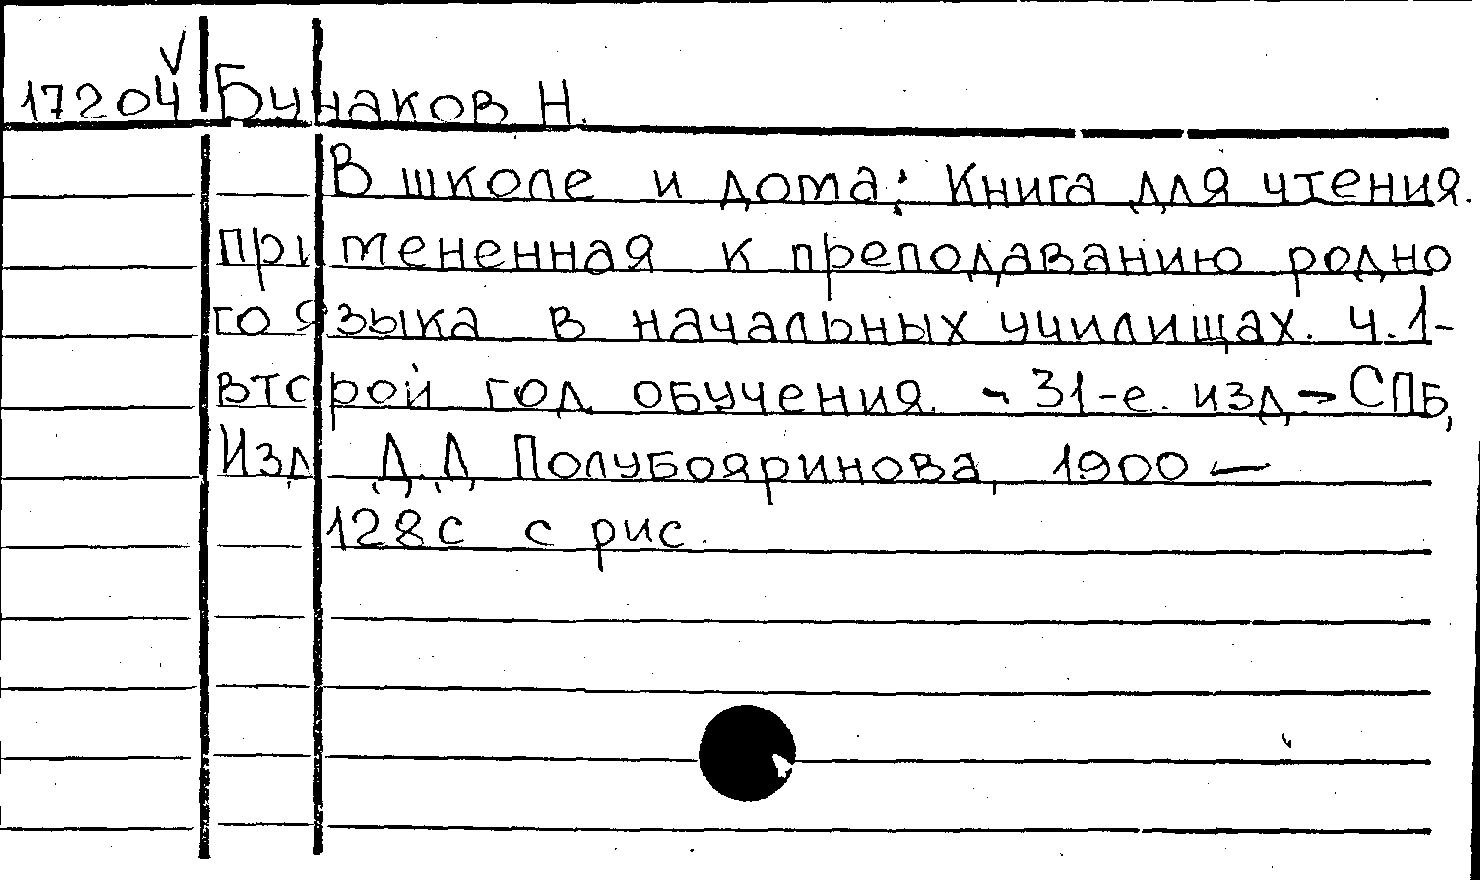 17204 Бунаков Н.
В школе и дома: Книга для чтения.
примененная к преподаванию родно
го языка в начальных училищах. ч.1-
второй год обучения. - 31-е. изд - СПБ,
Изд Д.Д Полубояринова, 1900 —
128с с рис.